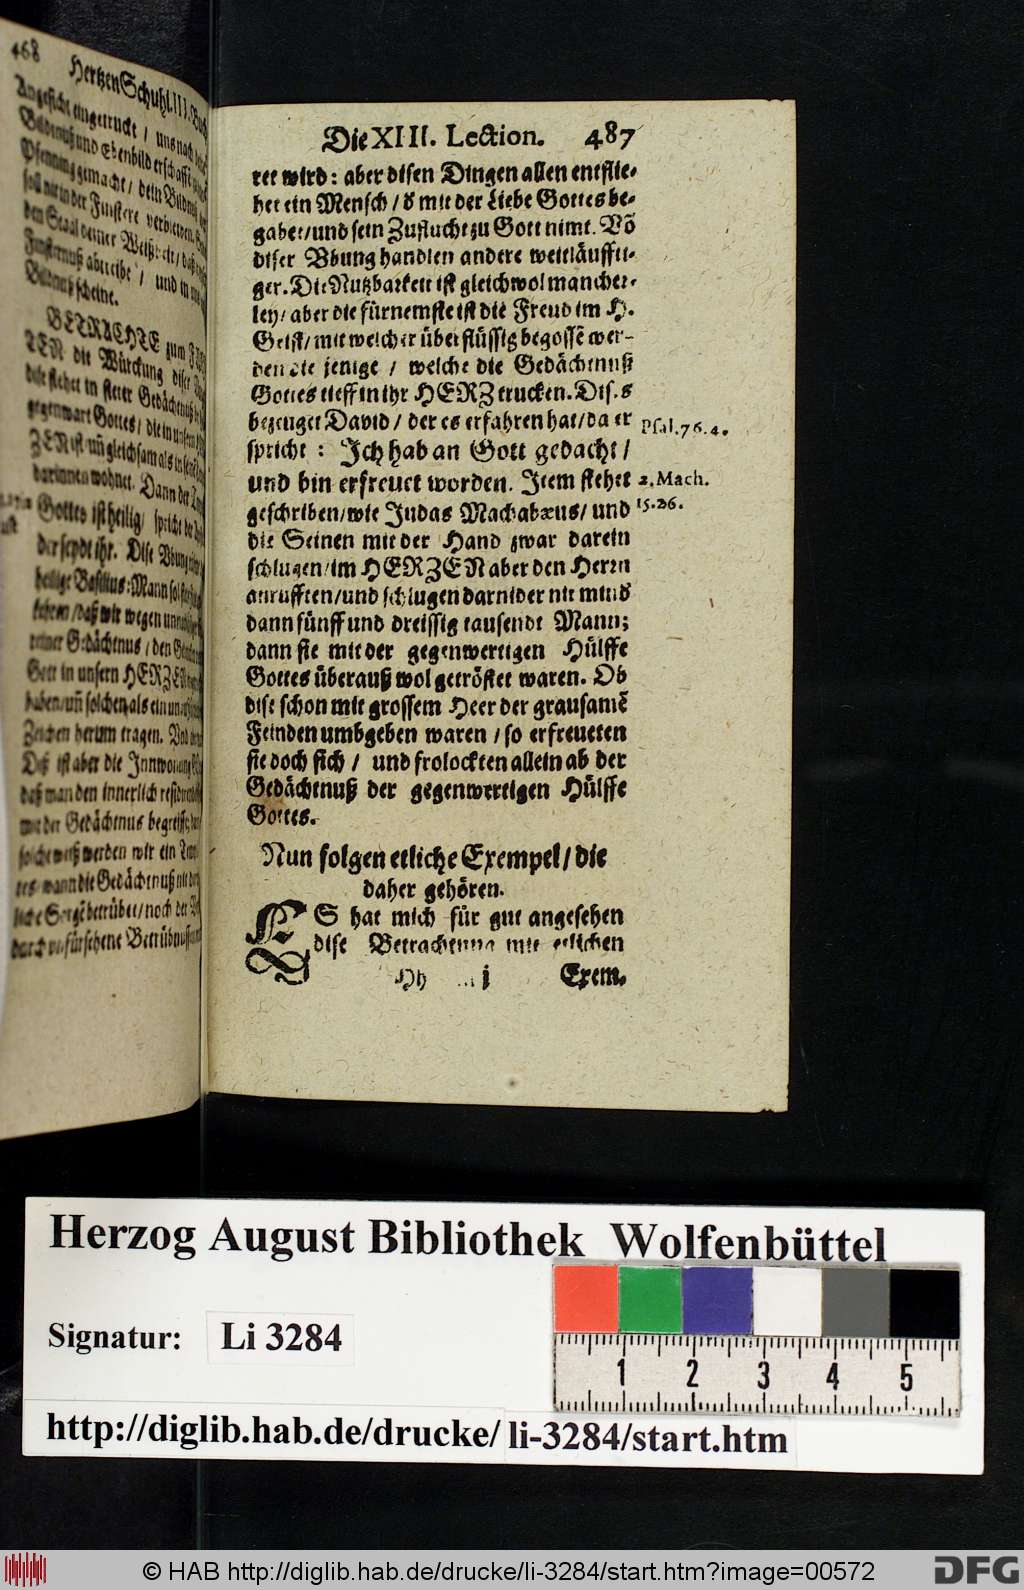 468 Hertzen Schuhl III. Buch
Angesicht eingetruckt / uns nach
Bildnuß und Ebenbild erschaffen
Pfenning gemacht / dein Bildnuß
soll nit in der Finstere verbleiben.
den Stral deiner Weißheit / daß
Finsternuß abtreibe / und in
Bildnuß scheine.
BETRACHTE zum
TEN die Würckung diser
dise stehet in steter Gedächtnuß
gegenwart Gottes / die in unsern
ZEN ist uñ gleichsam als in seinem
darinnen wohnet. Dann der
Gottes ist heilig / spricht der
der seydt ihr. Dise Ubung
heilige Basilius: Mann soll
kehren / daß wir wegen
reiner Gedächtnus / den
Gott in unsern HERZEN
haben / uñ solchen als ein
Zeichen herum tragen. Und
Diß ist aber die Innwonung
daß man den innerlich
mit der Gedächtnus begreiffe;
solche weiß werden wir ein
tes wann die Gedächtnuß nit
liche Sorgē betrübet / noch der
durch unfürsehene Betrübnussen
Die XIII. Lection. 487
ret wird: aber disen Dingen allen entflie-
het ein Mensch / d mit der Liebe Gottes be-
gabet / und sein Zuflucht zu Gott nimt. Võ
diser Ubung handlen andere weitläuffti-
ger. Die Nutzbarkeit ist gleichwol mancher-
ley / aber die fürnemste ist die Freud im H.
Geist / mit welcher überflüssig begossẽ wer-
den die jenige / welche die Gedächtnuß
Gottes tieff in ihr HERZ trucken. Dises
bezeuget David / der es erfahren hat / da er
spricht: Ich hab an Gott gedacht /
Psal. 76. 4.
und bin erfreuet worden. Item stehet
2. Mach.
geschriben / wie Judas Machabæus / und
15. 26.
die Seinen mit der Hand zwar darein
schlugen / im HERZEN aber den Herrn
anrufften / und schlugen darnider nit mind
dann fünff und dreissig tausendt Mann;
dann sie mit der gegenwertigen Hülffe
Gottes überauß wol getröstet waren. Ob
dise schon mit grossem Heer der grausamẽ
Feinden umbgeben waren / so erfreueten
sie doch sich / und frolockten allein ab der
Gedächtnuß der gegenwertigen Hülffe
Gottes.
Nun folgen etliche Exempel / die
daher gehören.
ES hat mich für gut angesehen
dise Betrachtung mit etlichen
Hh i
Exem.
Herzog August Bibliothek Wolfenbüttel
Signatur: Li 3284
1 2 3 4 5
http://diglib.hab.de/drucke/ li-3284/start.htm
© HAB http://diglib.hab.de/drucke/li-3284/start.htm?image=00572
DFG